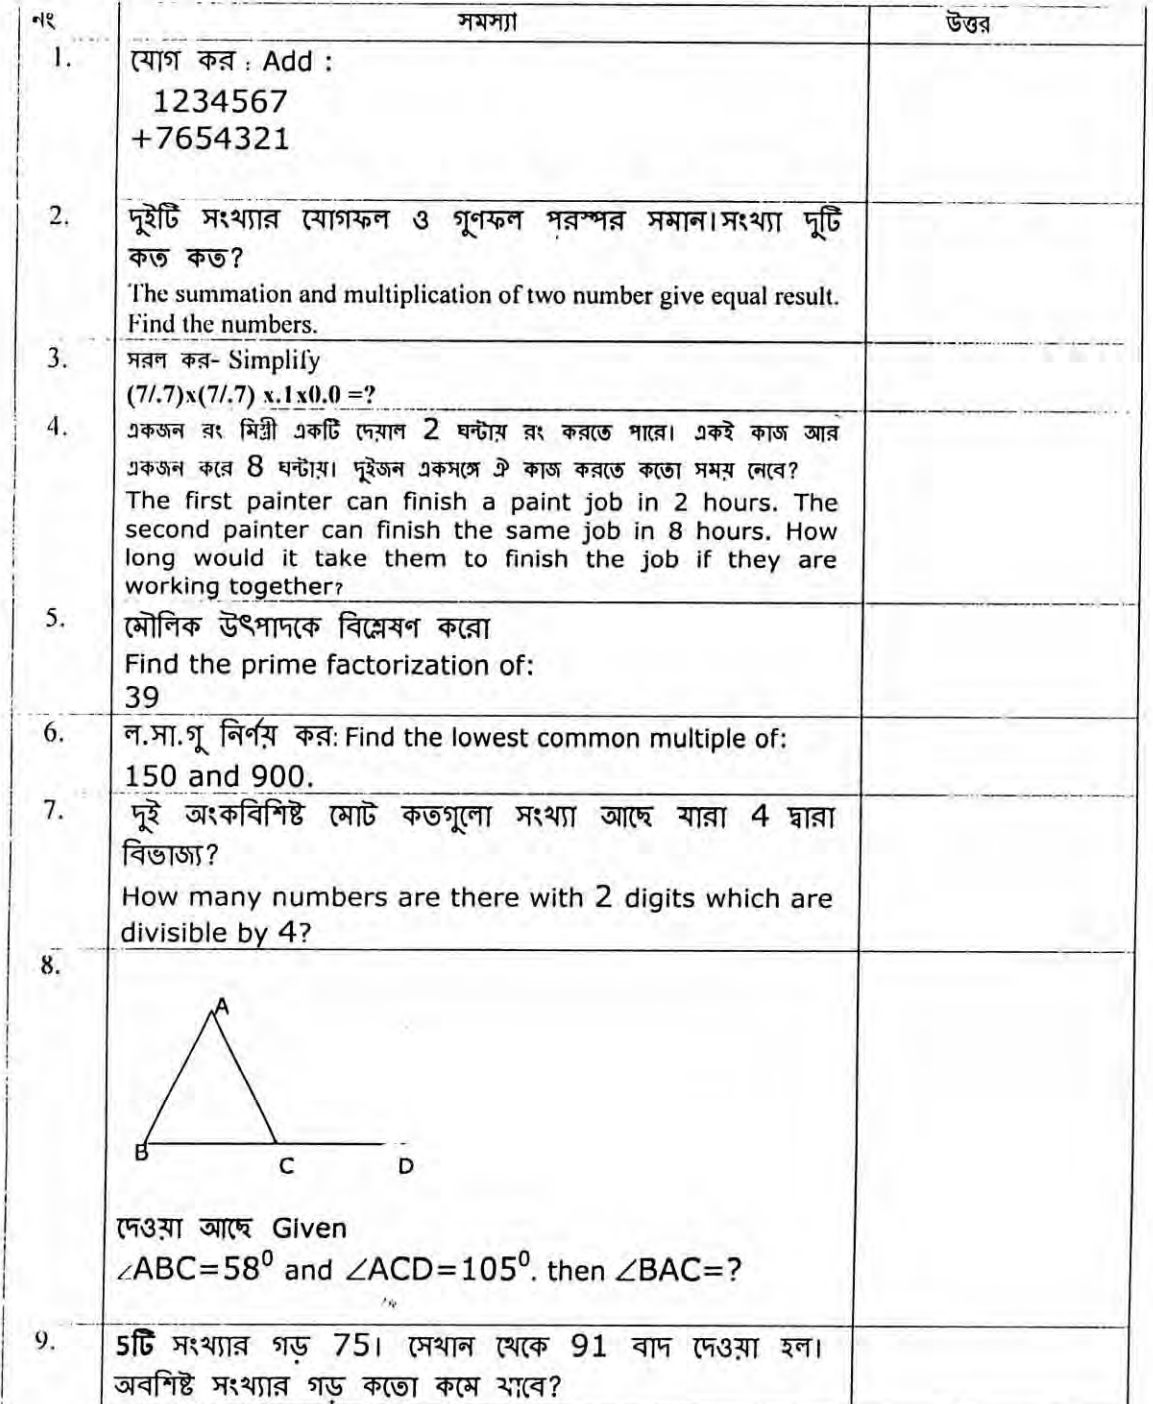 নং সমস্যা উত্তর
1. যোগ কর : Add :
1234567
+7654321
2. দুইটি সংখ্যার যোগফল ও গুণফল পরস্পর সমান।সংখ্যা দুটি
কত কত?
The summation and multiplication of two number give equal result.
Find the numbers.
3. সরল কর- Simplify
(7/.7)x(7/.7) x.1x0.0 =?
4. একজন রং মিস্ত্রী একটি দেয়াল 2 ঘন্টায় রং করতে পারে। একই কাজ আর
একজন করে 8 ঘন্টায়। দুইজন একসঙ্গে ঐ কাজ করতে কতো সময় নেবে?
The first painter can finish a paint job in 2 hours. The
second painter can finish the same job in 8 hours. How
long would it take them to finish the job if they are
working together?
5. মৌলিক উৎপাদকে বিশ্লেষণ করো
Find the prime factorization of:
39
6. ল.সা.গু নির্ণয় কর: Find the lowest common multiple of:
150 and 900.
7. দুই অংকবিশিষ্ট মোট কতগুলো সংখ্যা আছে যারা 4 দ্বারা
বিভাজ্য?
How many numbers are there with 2 digits which are
divisible by 4?
8.
A
B
C D
দেওয়া আছে Given
∠ABC=58⁰ and ∠ACD=105⁰. then ∠BAC=?
9. 5টি সংখ্যার গড় 75। সেখান থেকে 91 বাদ দেওয়া হল।
অবশিষ্ট সংখ্যার গড় কতো কমে যাবে?